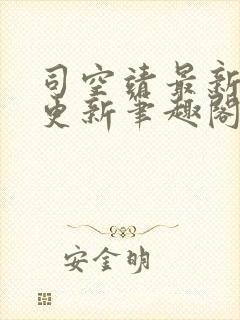 司空靖最新
更新笔趣阁
安金明